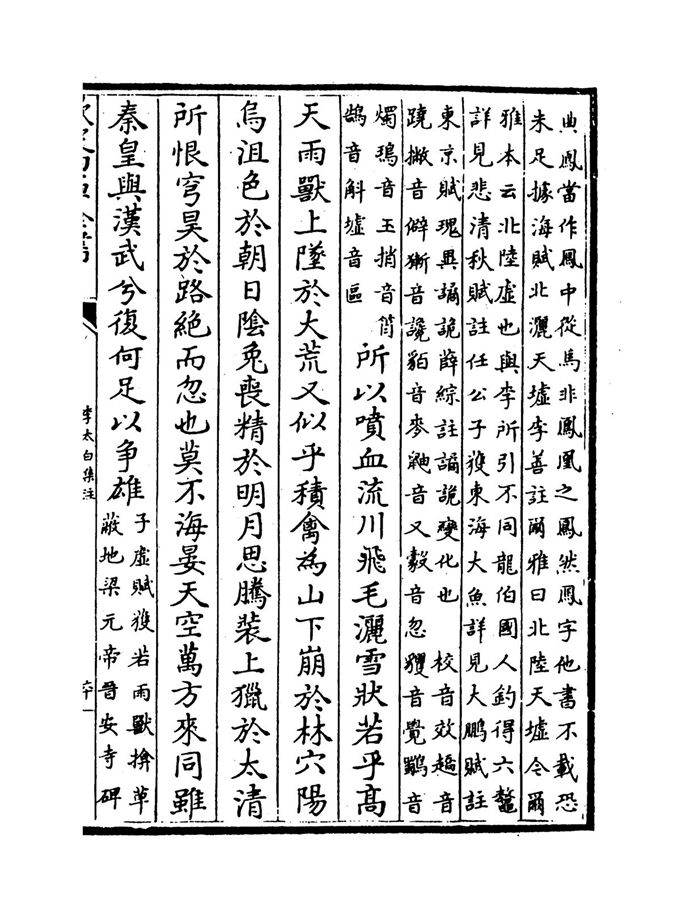 曲鳳當作鳳中從馬非鳳凰之鳳然鳳字他書不載恐
未足據海賦北灑天墟李善註爾雅曰北陸天墟今爾
雅本云北陸虛也與李所引不同龍伯國人釣得六鼇
詳見悲清秋賦註任公子獲東海大魚詳見大鵬賦註
東京賦瑰異譎詭薛綜註譎詭變化也　校音效趫音
蹺撇音僻獑音讒貊音麥鼬音又豰音忽玃音覺鸜音
燭鵶音玉捎音筲
鷁音斛墟音區
所以噴血流川飛毛灑雪狀若乎高
天雨獸上墜於大荒又似乎積禽為山下崩於林穴陽
烏沮色於朝日陰兔喪精於明月思騰裝上獵於太清
所恨穹昊於路絶而忽也莫不海晏天空萬方來同雖
秦皇與漢武兮復何足以争雄
子虛賦獲若雨獸揜草
蔽地梁元帝晉安寺碑
李太白集注